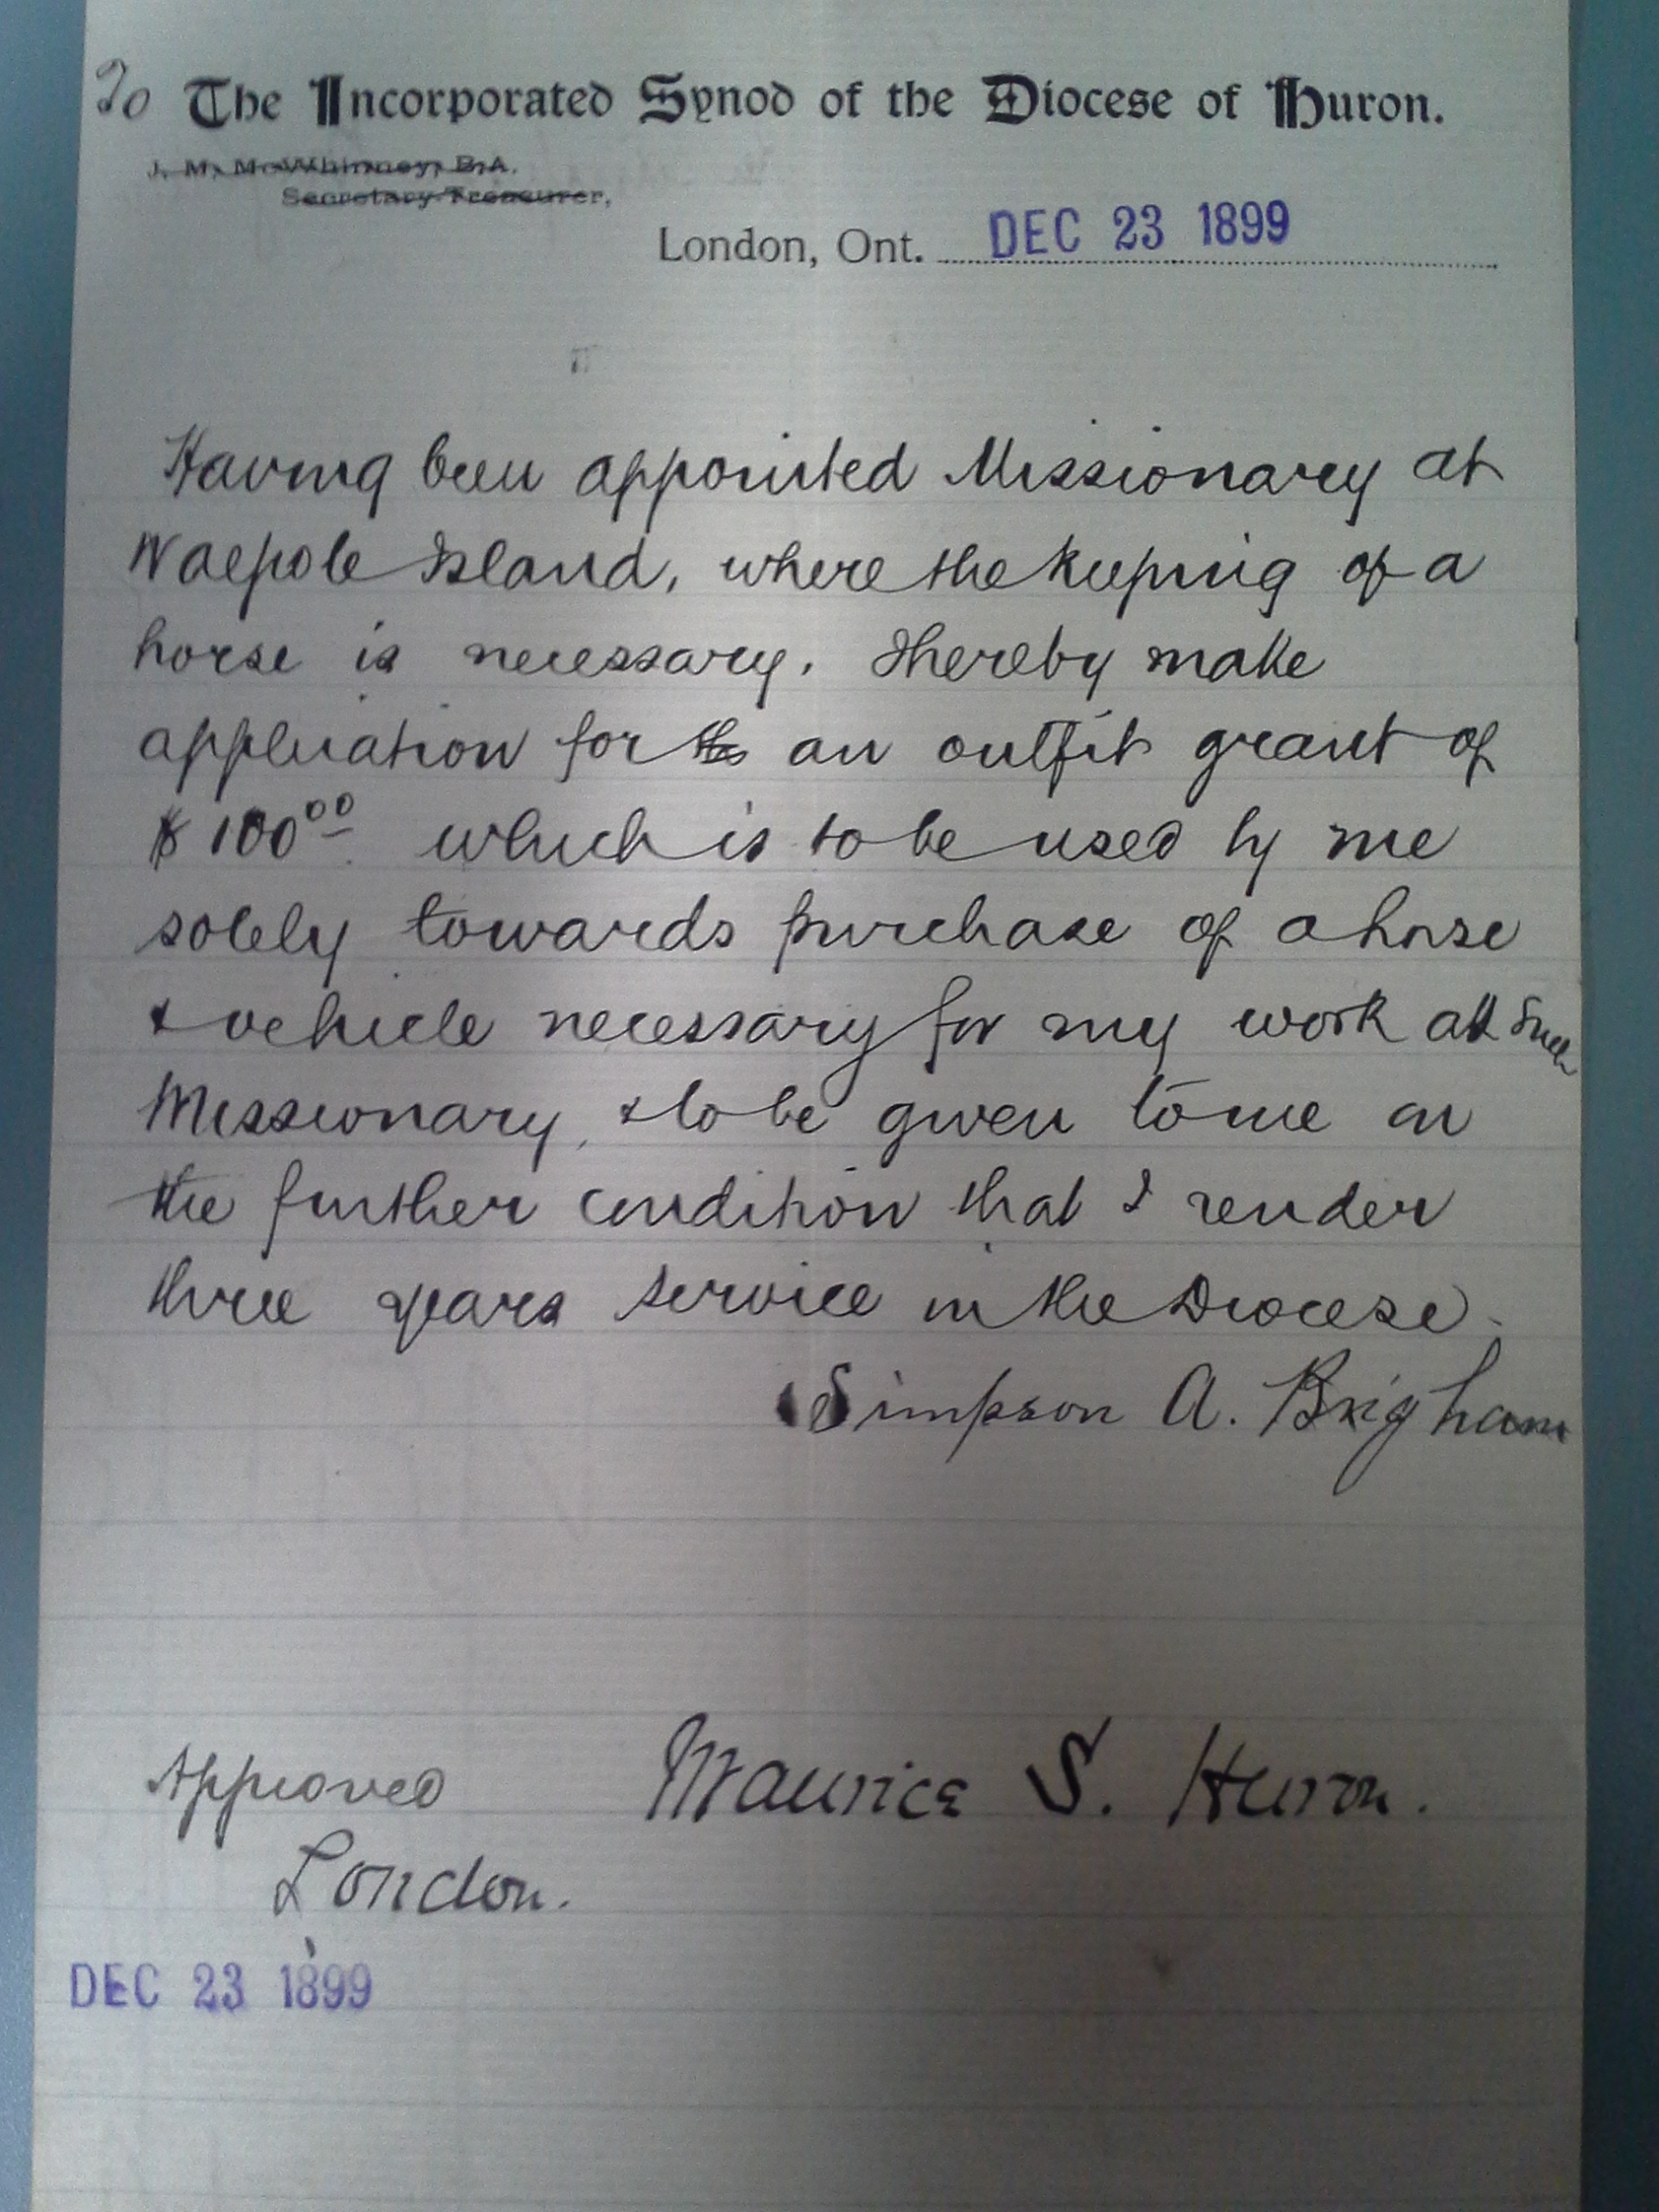 To The Incorporated Synod of the Diocese of Huron.
J. M. McWhinney, B.A.
Secretary-Treasurer,
London, Ont. DEC 23 1899
Having been appointed Missionary at
Walpole Island, where the keeping of a
horse is necessary. I hereby make
application for the an outfit grant of
$100.00 which is to be used by me
solely towards purchase of a horse
& vehicle necessary for my work as such
Missionary, & to be given to me on
the further condition that I render
three years service in the Diocese.
Simpson A. Brigham
Approved Maurice S. Huron.
London.
DEC 23 1899